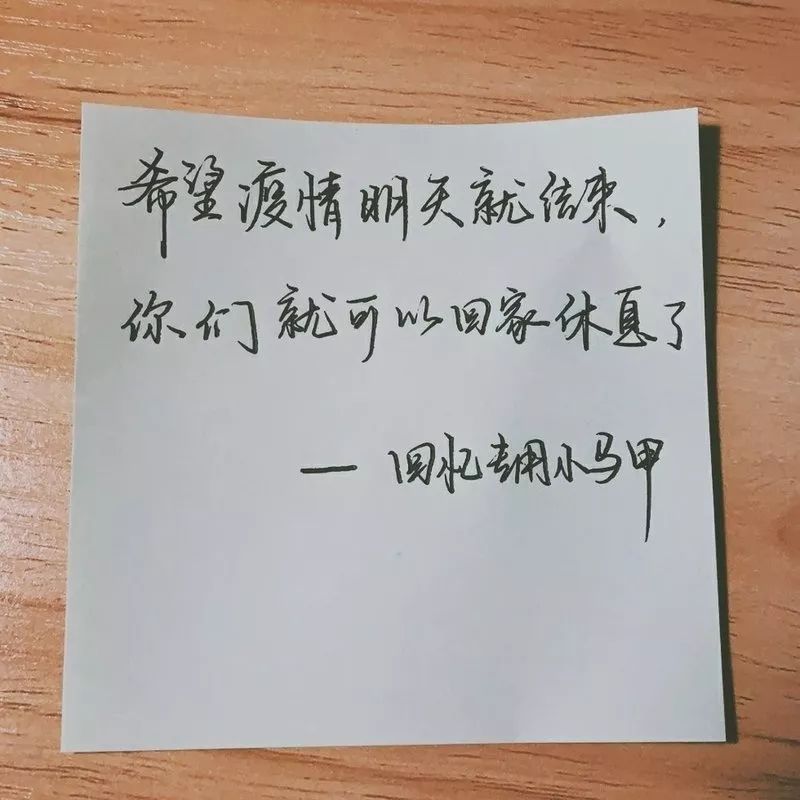 希望疫情明天就结束，
你们就可以回家休息了
— 回忆专用小马甲